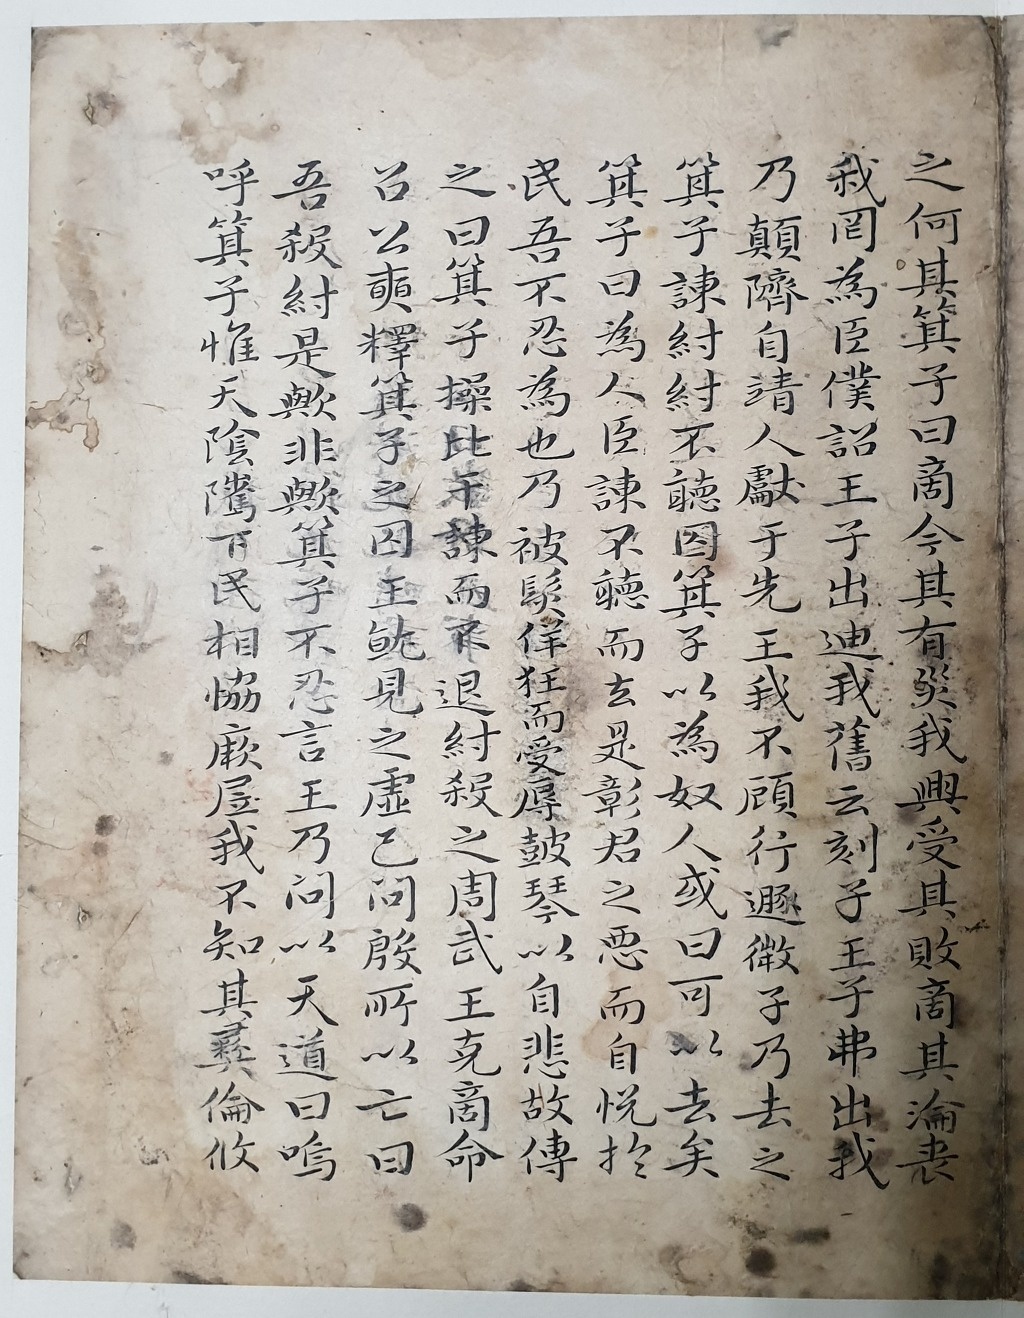 之何其箕子曰商今其有災我興受其敗商其淪喪
我罔為臣僕詔王子出迪我舊云刻子王子弗出我
乃顛隮自靖人獻于先王我不顧行遯微子乃去之
箕子諫紂紂不聽囚箕子以為奴人或曰可以去矣
箕子曰為人臣諫不聽而去是彰君之惡而自悅於
民吾不忍為也乃被髮佯狂而受辱鼓琴以自悲故傳
之曰箕子操比干諫而不退紂殺之周武王克商命
召公奭釋箕子之囚王就見之虛己问殷所以亡曰
吾殺紂是歟非歟箕子不忍言王乃问以天道曰嗚
呼箕子惟天陰隲下民相協厥居我不知其彝倫攸